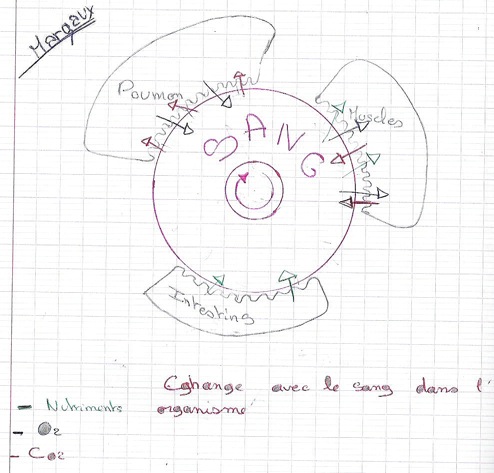 Margaux
Poumon
Muscles
SANG
Intestins
Echange avec le sang dans l'
organisme
- Nutriments
- O2
- Co2